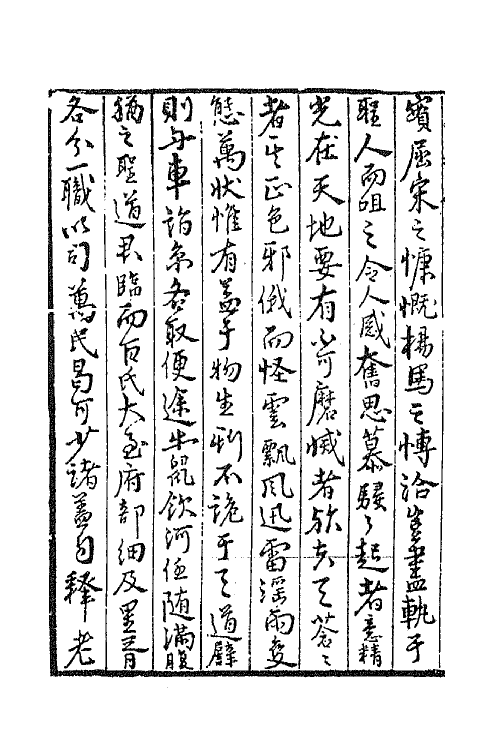 續屈宋之慷慨楊馬之博洽豈盡軌于
聖人而咀之令人感奮思慕駸々起者意精
光在天地要有不可磨滅者歟夫天蒼々
者其正色邪俄而怪雲飄風迅雷滛雨变
態萬狀惟有益于物生斯不詭于天道譬
則舟車詣京各取便途牛鼠飲河任随滿腹
猶之聖道君臨而百氏大至府部細及里胥
各分一職以司萬民曷可少諸盖自釋老